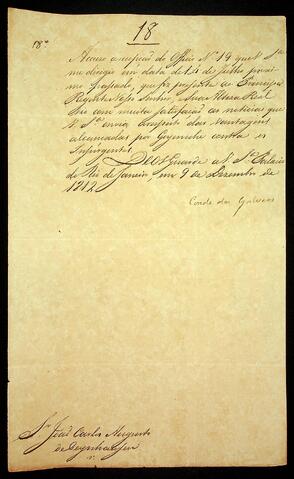 18
18º
Accuso a recepção do Officio Nº 14 que V. Sª
me dirigio em data de 14 de Julho proxi-
mo passado, que foi presente ao Principe
Regente Nosso Senhor, Sua Alteza Real
vio com muita satisfação as noticias que
V. Sª envia a respeito das vantagens
alcançadas por Goyeneche contra os
Insurgentes.
Deos Guarde a V. Sª Palacio
do Rio de Janeiro, em 9 de Dezembro de
1812
Conde das Galveas
Snr João Carlos Augusto
de Oeynhausen